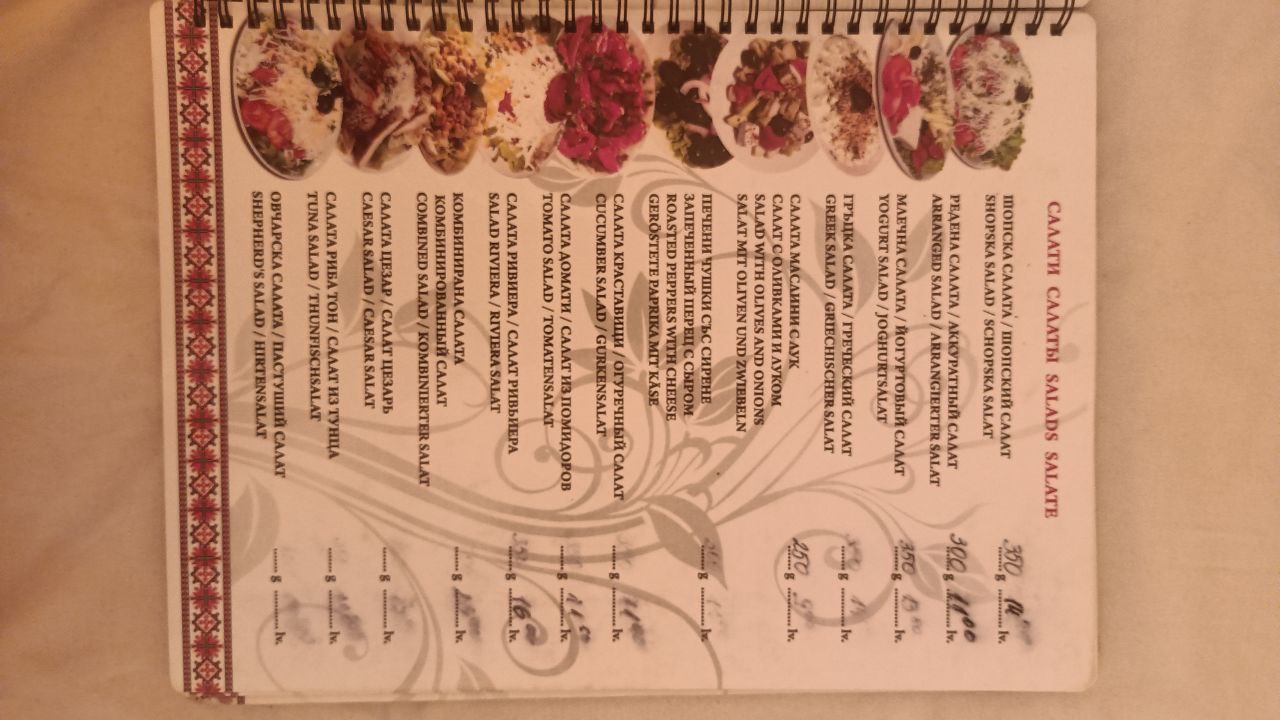 САЛАТИ САЛАТЫ SALADS SALATE
ШОПСКА САЛАТА / ШОПСКИЙ САЛАТ 350 g 14 lv.
SHOPSKA SALAD / SCHOPSKA SALAT
РЕДЕНА САЛАТА / АККУРАТНЫЙ САЛАТ 300 g 11 00 lv.
ARRANGED SALAD / ARRANGIERTER SALAT
МЛЕЧНА САЛАТА / ЙОГУРТОВЫЙ САЛАТ 350 g lv.
YOGURT SALAD / JOGHURTSALAT
ГРЪЦКА САЛАТА / ГРЕЧЕСКИЙ САЛАТ g lv.
GREEK SALAD / GRIECHISCHER SALAT
САЛАТА МАСЛИНИ С ЛУК 250 g lv.
САЛАТ С ОЛИВКАМИ И ЛУКОМ
SALAD WITH OLIVES AND ONIONS
SALAT MIT OLIVEN UND ZWIEBELN
ПЕЧЕНИ ЧУШКИ СЪС СИРЕНЕ g lv.
ЗАПЕЧЕННЫЙ ПЕРЕЦ С СЫРОМ
ROASTED PEPPERS WITH CHEESE
GERÖSTETE PAPRIKA MIT KÄSE
САЛАТА КРАСТАВИЦИ / ОГУРЕЧНЫЙ САЛАТ g 11 00 lv.
CUCUMBER SALAD / GURKENSALAT
САЛАТА ДОМАТИ / САЛАТ ИЗ ПОМИДОРОВ g 11 00 lv.
TOMATO SALAD / TOMATENSALAT
САЛАТА РИВИЕРА / САЛАТ РИВЬИЕРА g 16 00 lv.
SALAD RIVIERA / RIVIERA SALAT
КОМБИНИРАНА САЛАТА g lv.
КОМБИНИРОВАННЫЙ САЛАТ
COMBINED SALAD / KOMBINIERTER SALAT
САЛАТА ЦЕЗАР / САЛАТ ЦЕЗАРЬ g lv.
CAESAR SALAD / CAESAR SALAT
САЛАТА РИБА ТОН / САЛАТ ИЗ ТУНЦА g lv.
TUNA SALAD / THUNFISCHSALAT
ОВЧАРСКА САЛАТА / ПАСТУШИЙ САЛАТ g lv.
SHEPHERD'S SALAD / HIRTENSALAT